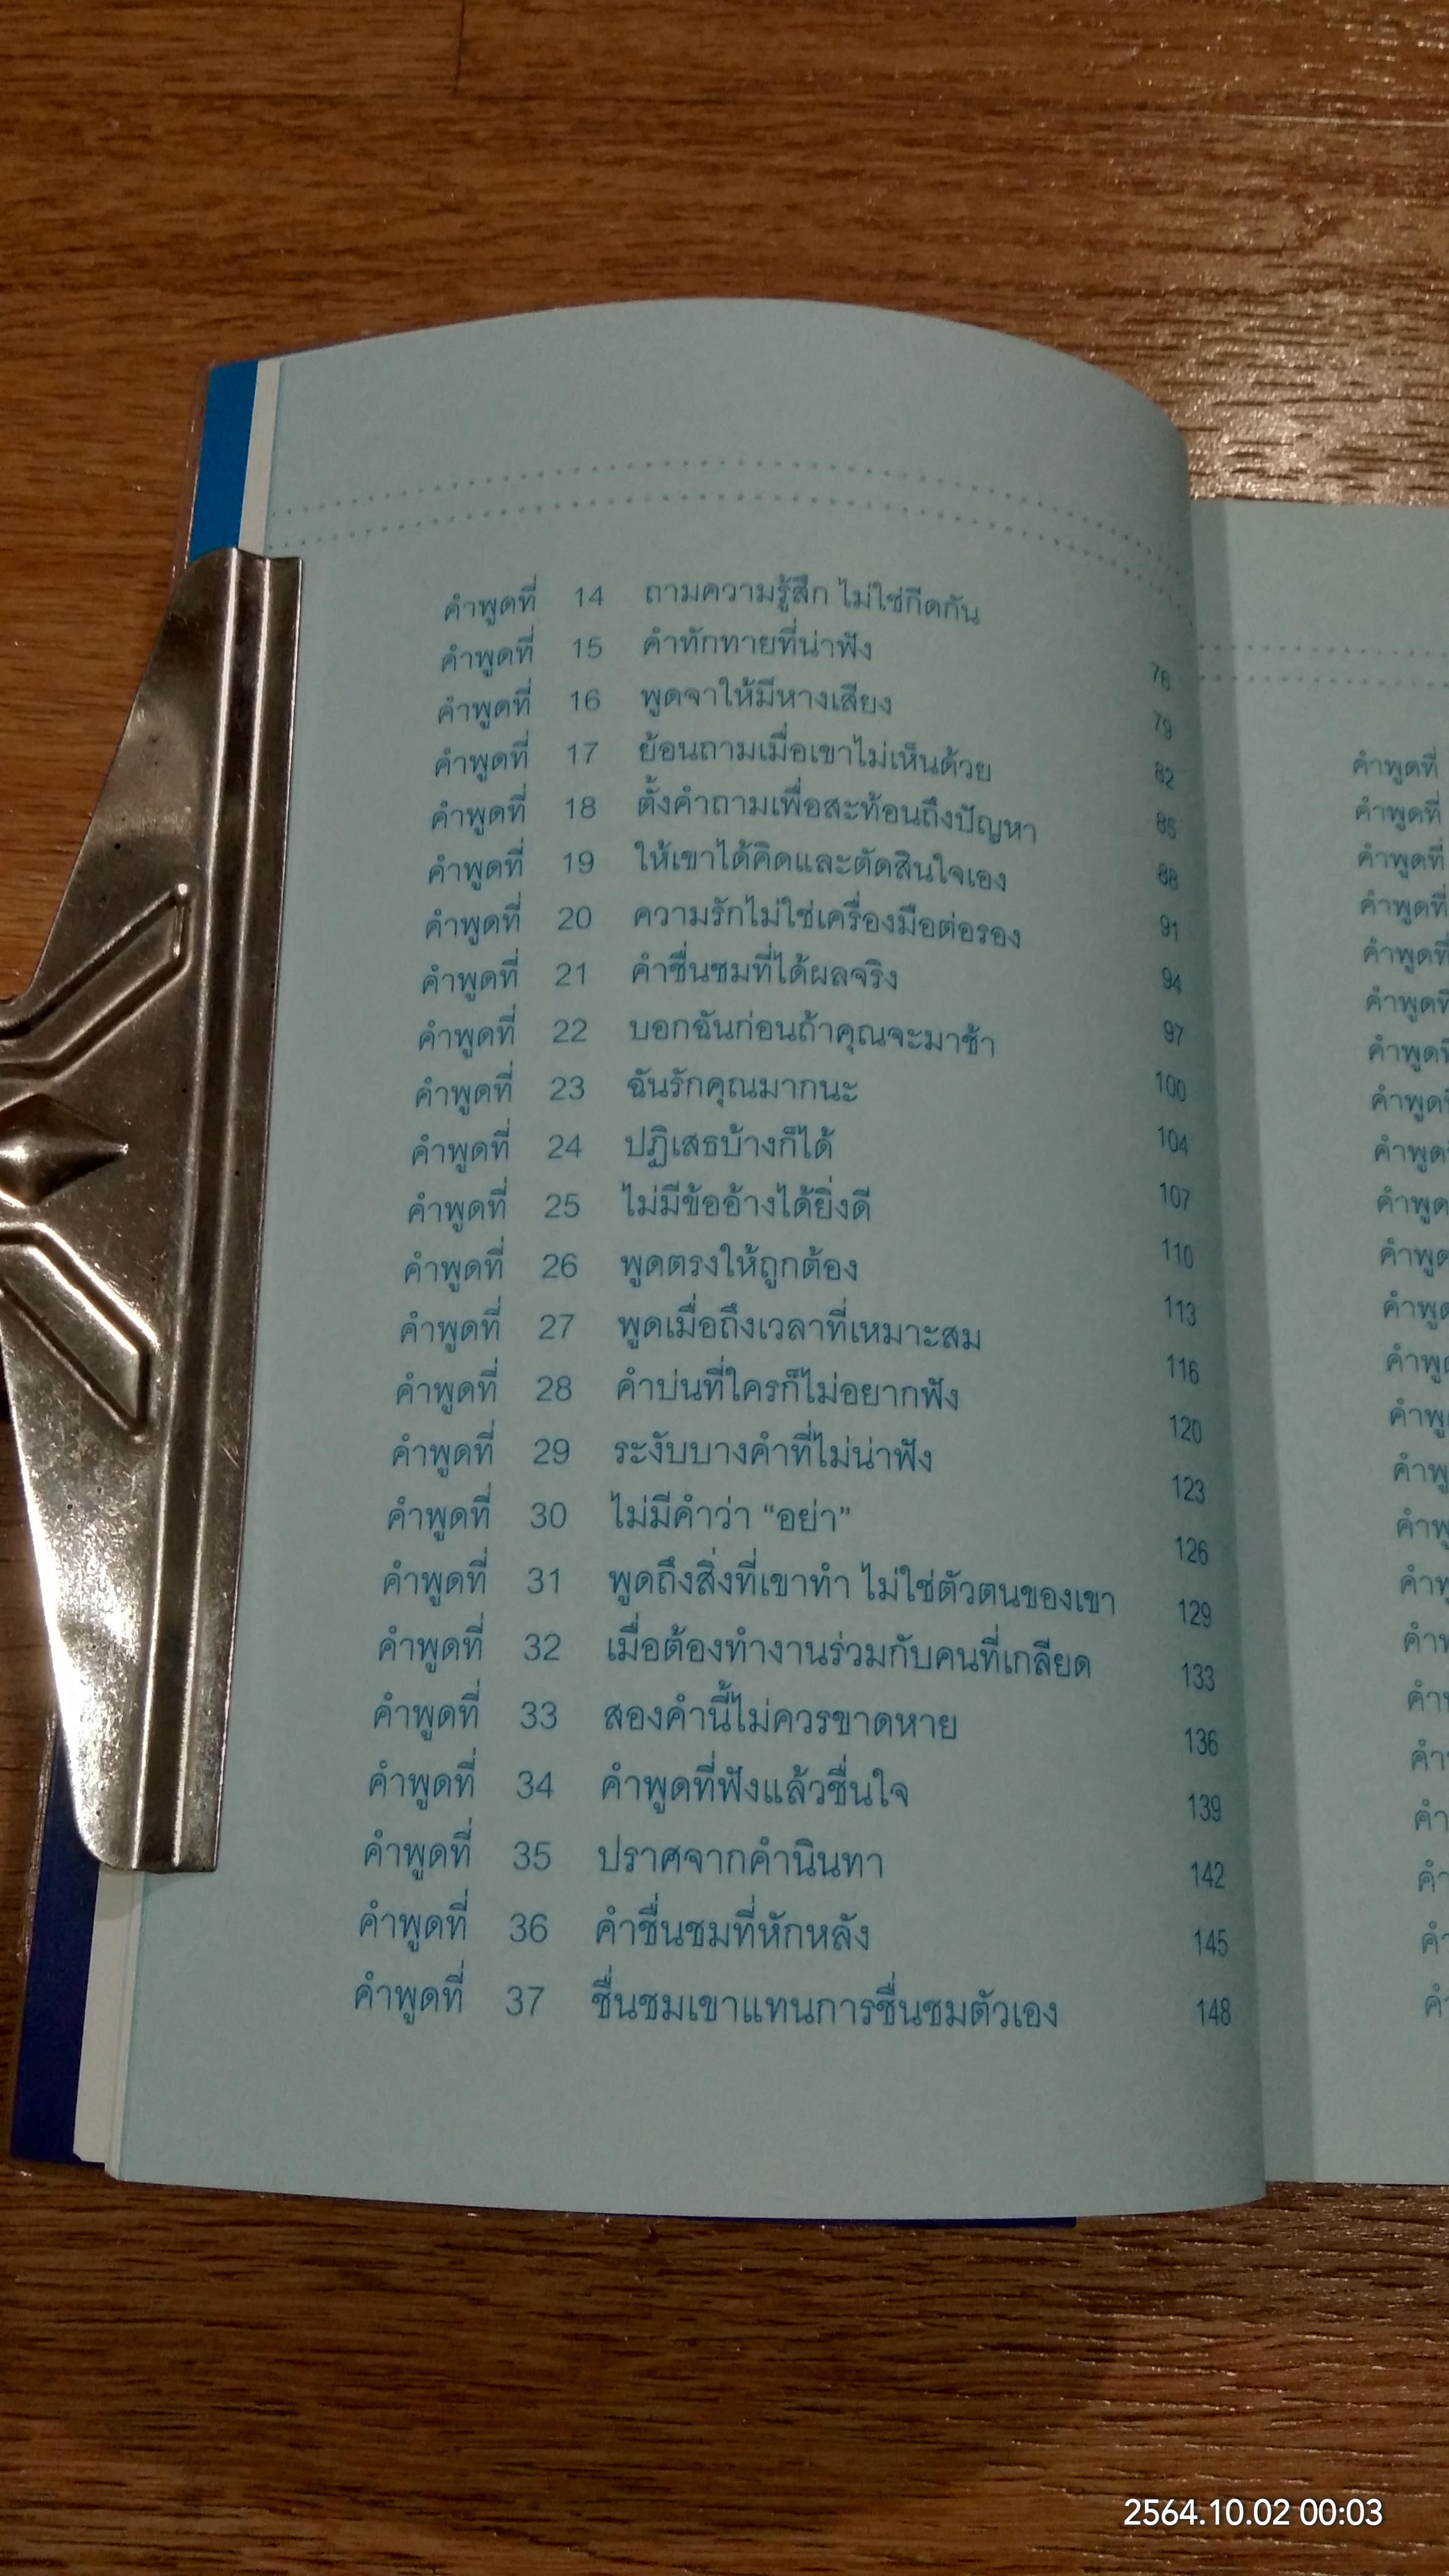 คำพูดที่ 14 ถามความรู้สึก ไม่ใช่กีดกัน 76
คำพูดที่ 15 คำทักทายที่น่าฟัง 79
คำพูดที่ 16 พูดจาให้มีหางเสียง 82
คำพูดที่ 17 ย้อนถามเมื่อเขาไม่เห็นด้วย 85
คำพูดที่ 18 ตั้งคำถามเพื่อสะท้อนถึงปัญหา 88
คำพูดที่ 19 ให้เขาได้คิดและตัดสินใจเอง 91
คำพูดที่ 20 ความรักไม่ใช่เครื่องมือต่อรอง 94
คำพูดที่ 21 คำชื่นชมที่ได้ผลจริง 97
คำพูดที่ 22 บอกฉันก่อนถ้าคุณจะมาช้า 100
คำพูดที่ 23 ฉันรักคุณมากนะ 104
คำพูดที่ 24 ปฏิเสธบ้างก็ได้ 107
คำพูดที่ 25 ไม่มีข้ออ้างได้ยิ่งดี 110
คำพูดที่ 26 พูดตรงให้ถูกต้อง 113
คำพูดที่ 27 พูดเมื่อถึงเวลาที่เหมาะสม 116
คำพูดที่ 28 คำบ่นที่ใครก็ไม่อยากฟัง 120
คำพูดที่ 29 ระงับบางคำที่ไม่น่าฟัง 123
คำพูดที่ 30 ไม่มีคำว่า “อย่า” 126
คำพูดที่ 31 พูดถึงสิ่งที่เขาทำ ไม่ใช่ตัวตนของเขา 129
คำพูดที่ 32 เมื่อต้องทำงานร่วมกับคนที่เกลียด 133
คำพูดที่ 33 สองคำนี้ไม่ควรขาดหาย 136
คำพูดที่ 34 คำพูดที่ฟังแล้วชื่นใจ 139
คำพูดที่ 35 ปราศจากคำนินทา 142
คำพูดที่ 36 คำชื่นชมที่หักหลัง 145
คำพูดที่ 37 ชื่นชมเขาแทนการชื่นชมตัวเอง 148
คำพูดที่
คำพูดที่
คำพูดที่
คำพูดที่
คำพูดที่
2564.10.02 00:03